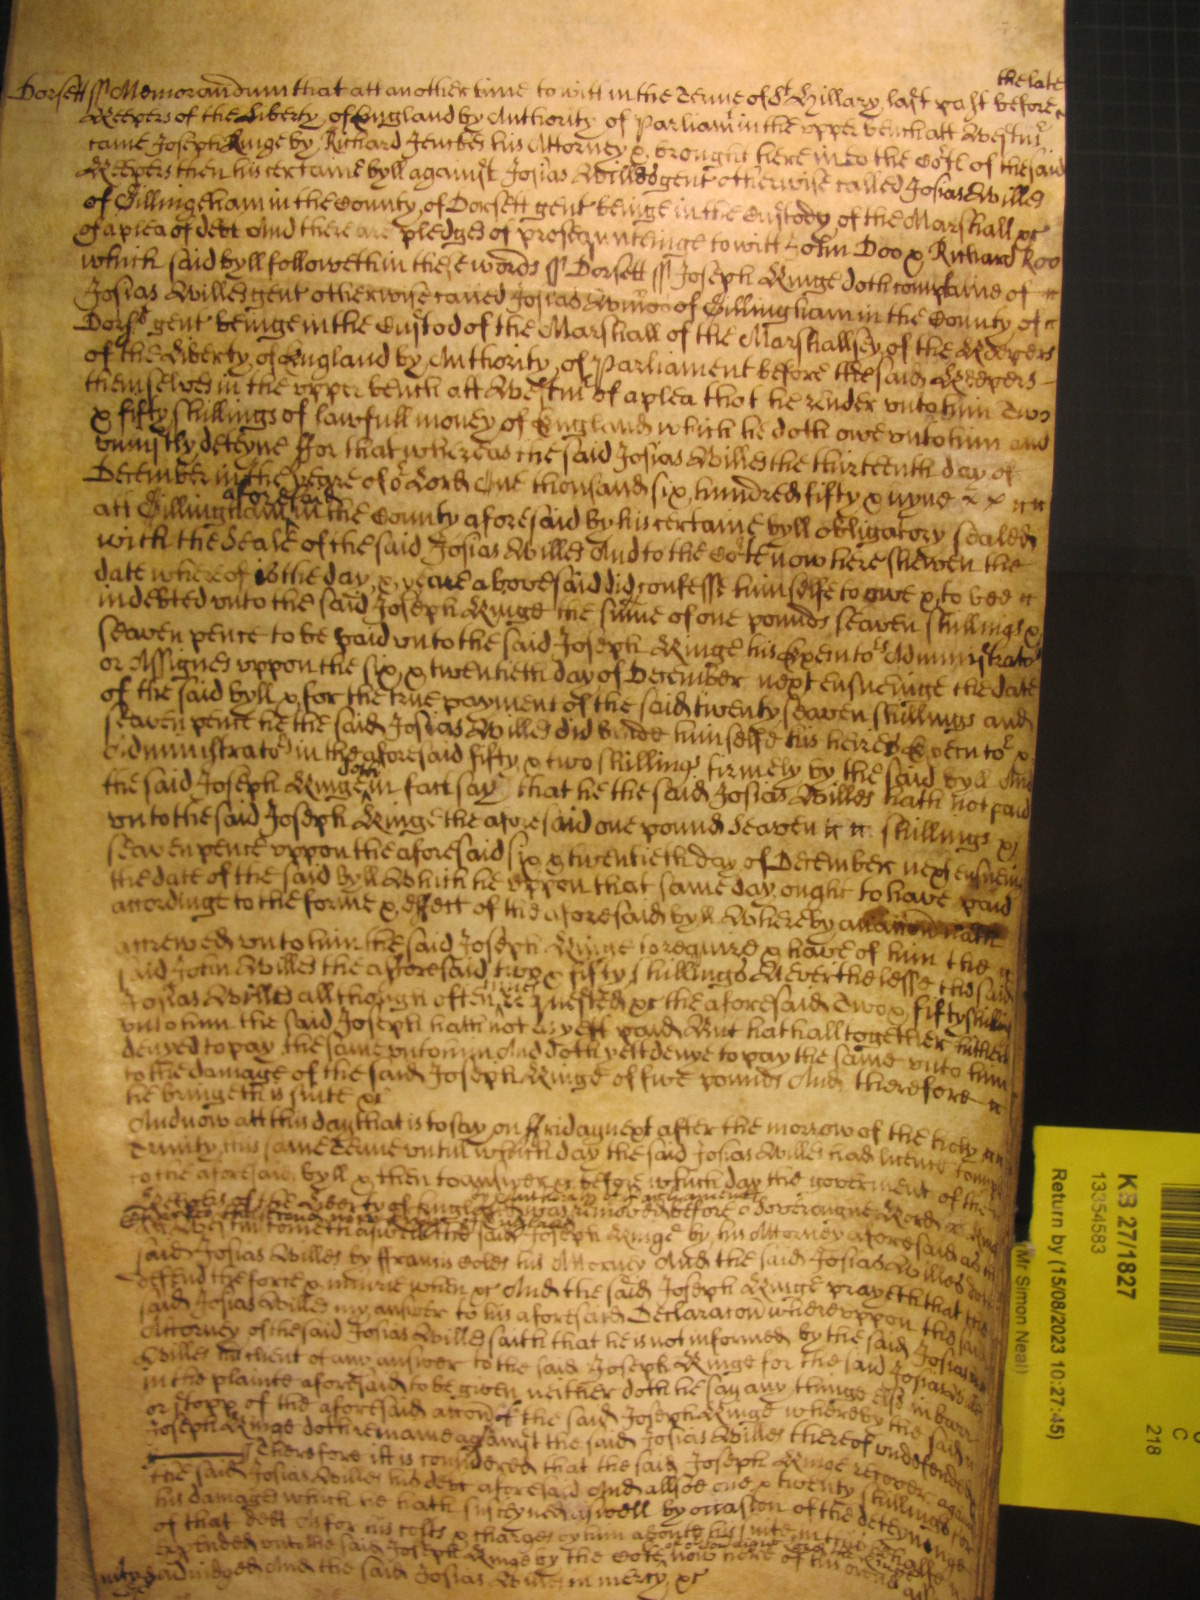 the late
Dorsett ss Memorandum that att another time to witt in the Terme of St. Hillary last past before
Keepers of the Liberty of England by Authority of Parliamt in the upper bench att Westmr
came Joseph Ringe by Richard his Attorney & brought here into the Cort of the said
Keepers then his certaine byll against Josias Willes gent otherwise called Josias Willes
of Gillingham in the County of Dorsett gent beinge in the Custody of the Marshall &c
of a plea of debt And there are pledges of prosecuteinge to witt John Doo & Richard Roo
which said byll followeth in these words ss Dorsett ss Joseph Ringe doth complaine of
Josias Willes gent otherwise called Josias Willes of Gillingham in the County of
Dorstt gent beinge in the Custod of the Marshall of the Marshallsey of the Keepers
of the Liberty of England by Authority of Parliament before the said Keepers
themselves in the upper bench att Westmr of a plea that he render unto him Two
& fifty shillings of lawfull money of England which he doth owe unto him and
uniustly deteyne ffor that whereas the said Josias Willes the thirteenth day of
December in the yeare of or Lord One thousand six hundred fifty & nyne
aforesaid
att Gillingham in the County aforesaid by his certaine byll obligatory sealed
with the Seale of the said Josias Willes And to the Corte now here shewen the
date whereof is the day & yeare abovesaid did confesse himselfe to owe & to bee
indebted unto the said Joseph Ringe the sume of one pounds seaven shillings &
seaven pence to be paid unto the said Joseph Ringe his Executors Administrators
or Assignes uppon the six & twentieth day of December next ensueinge the date
of the said byll & for the true payment of the said twenty seaven shillings and
seaven pence he the said Josias Willes did binde himselfe his heires Executors &
Administrators in the aforesaid fifty & two shillings firmely by the said byll And
doth
the said Joseph Ringe in fact say that he the said Josias Willes hath not paid
unto the said Joseph Ringe the aforesaid one pound Seaven shillings &
seaven pence uppon the aforesaid six & twentieth day of December next ensueing
the date of the said byll Which he uppon that same day ought to have paid
accordinge to the forme & effect of the aforesaid byll Whereby an accon hath
accrewed unto him the said Joseph Ringe to require & have of him the
said Josias Willes the aforesaid two & fifty shillings Neverthelesse the said
Josias Willes allthough often tymes requested &c the aforesaid Two & fifty shillings
unto him the said Joseph hath not as yett paid But hath alltogether hitherto
denyed to pay the same unto him And doth yett denye to pay the same unto him
to the damage of the said Joseph Ringe of five pounds And therefore
he bringeth suite &c
And now att this day that is to say on ffriday next after the morrow of the holy
Trinity this same Terme untill which day the said Josias Willes had licence to imp
to the aforesaid byll & then to answer & before which day the goverment of the
by authority of parliament
Keepers of the Liberty of England was removed before or Sovereigne Lord the King
att Westmr cometh aswell the said Joseph Ringe by his Attorney aforesaid as the
said Josias Willes by ffrancis his Attorney And the said Josias Willes doth
defend the force & iniurie when &c And the said Joseph Ringe prayeth that the
said Josias Willes may answer to his aforesaid Declaracon whereuppon the said
Attorney of the said Josias Willes saith that he is not informed by the said Josias
Willes his client of any answer to the said Joseph Ringe for the said Josias Willes
in the plainte aforesaid to be given neither doth he say any thinge els in barr
or stopp of the aforesaid accon of the said Joseph Ringe whereby the said
Joseph Ringe doth remaine against the said Josias Willes thereof undefended
Therefore itt is considered that the said Joseph Ringe recover against
the said Josias Willes his debt aforesaid And allsoe one & twenty shillings for
his damages which he hath susteyned aswell by occasion of the deteyninge
of that debt As for his costs & charges by him about his suite in this behalfe
expended unto the said Joseph Ringe by the Corte now here of his
adiudged And the said Josias Willes in mercy &c
KB 27/1827
13354583
Return by (15/08/2023 10:27:45)
(Mr Simon Neal)
C
218